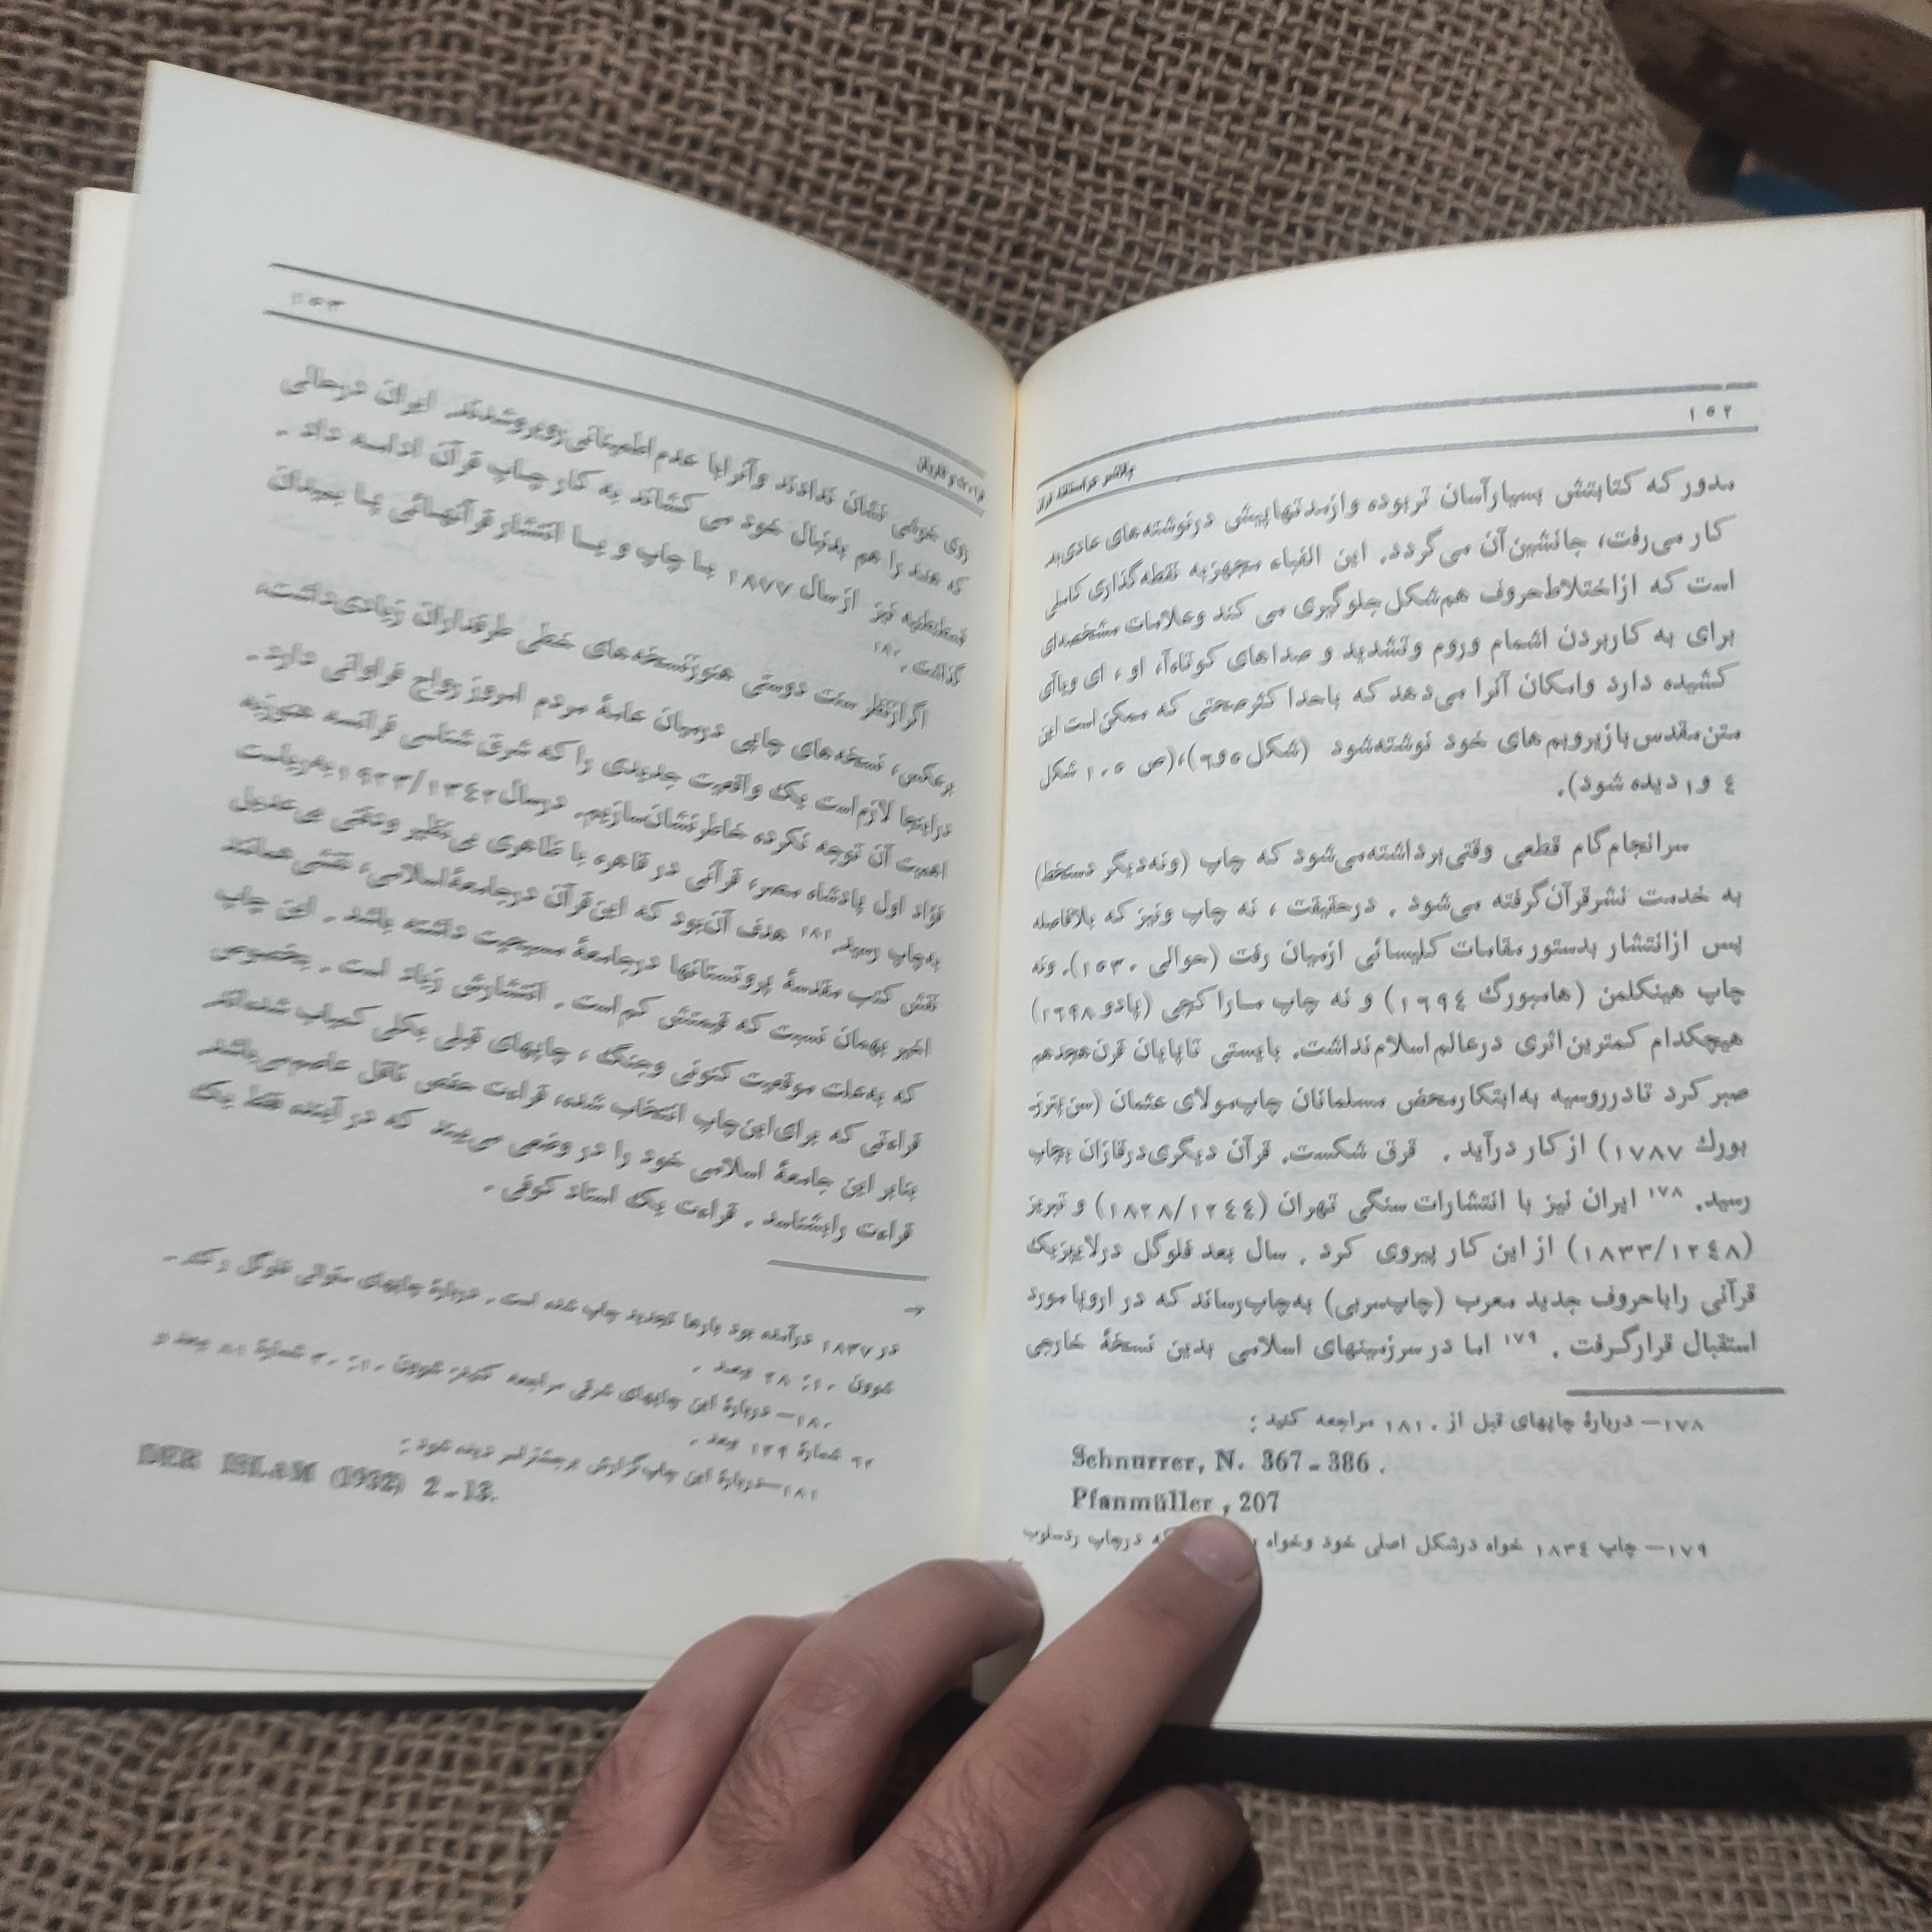 ۱۵۲
بلاشر در آستانه قرآن
مدور که کتابتش بسیارآسان تربوده وازمدتهاپیش درنوشته‌های عادی‌بد
کار می‌رفت، جانشین‌آن می‌گردد. این الفباء مجهزبه نقطه‌گذاری کاملی
است که ازاختلاط‌حروف هم‌شکل‌جلوگیری می کند وعلامات مشخصه‌ای
برای به کاربردن اشمام وروم وتشدید و صداهای کوتاه‌آ، او ، ای ویاآی
کشیده دارد وامکان آنرا می‌دهد که باحداکثرصحتی که ممکن‌است این
متن‌مقدس‌بازیروبم‌های خود نوشته‌شود (شکل ۵و۶)،(ص ۱۰۵ شکل
۴ و۱ دیده شود).
سرانجام‌گام قطعی وقتی‌برداشته‌می‌شود که چاپ (ونه‌دیگر دستخط)
به خدمت نشرقرآن‌گرفته می‌شود . درحقیقت ، نه چاپ ونیز که بلافاصله
پس ازانتشار بدستور مقامات کلیسائی ازمیان رفت (حوالی ۱۵۳۰). ونه
چاپ هینکلمن (هامبورگ ۱۶۹۴) و نه چاپ ماراکچی (پادو ۱۶۹۸)
هیچکدام کمترین‌اثری درعالم‌اسلام‌نداشت. بایستی تاپایان قرن‌هجدهم
صبر کرد تادرروسیه به‌ابتکارمحض مسلمانان چاپ‌مولای عثمان (سن‌پترز-
بورك ۱۷۸۷) از کار درآید . قرق شکست. قرآن دیگری‌درقازان بچاپ
رسید. ۱۷۸ ایران نیز با انتشارات سنگی تهران (۱۸۲۸/۱۲۴۴) و تبریز
(۱۸۳۳/۱۲۴۸) از این کار پیروی کرد . سال بعد فلوگل درلایپزیک
قرآنی راباحروف جدید معرب (چاپ‌سربی) به‌چاپ‌رساند که در اروپا مورد
استقبال قرارگرفت . ۱۷۹ اما در سرزمینهای اسلامی بدین نسخهٔ خارجی
۱۷۸— دربارهٔ چاپهای قبل از ۱۸۱۰ مراجعه کنید :
Schnurrer, N. 367-386 .
Pfanmüller , 207
۱۷۹— چاپ ۱۸۳۴ خواه درشکل اصلی خود وخواه که درچاپ ردسلوب
۱۵۳
قراءت و قاریان
روی خوشی نشان ندادند وآنرابا عدم‌اطمینانی‌روبروشدند. ایران درحالی
که هند را هم بدنبال خود می کشاند به کار چاپ قرآن ادامه داد .
قسطنطنیه نیز از سال ۱۸۷۷ با چاپ و با انتشار قرآنهائی پا بمیدان
گذاشت . ۱۸۰
اگرازنظر سنت دوستی هنوزنسخه‌های خطی طرفداران زیادی‌داشت،
برعکس، نسخه‌های چاپی درمیان عامهٔ مردم امروز رواج فراوانی دارد .
دراینجا لازم‌است یک واقعیت جدیدی را که شرق شناسی فرانسه هنوزبه
اهمیت آن توجه نکرده خاطرنشان‌سازیم. درسال۱۹۲۳/۱۳۴۲ به‌ریاست
فؤاد اول پادشاه مصر، قرآنی در قاهره با ظاهری بی‌نظیر ودقتی بی‌عدیل
به‌چاپ رسید. ۱۸۱ هدف آن‌بود که این‌قرآن درجامعهٔ‌اسلامی، نقشی‌همانند
نقش کتب مقدسهٔ پروتستانها درجامعهٔ مسیحیت داشته باشد . این چاپ
اخیر بهمان نسبت که قیمتش کم است . انتشارش زیاد است . بخصوص
که به‌علت موقعیت کنونی وجنگ ، چاپهای قبلی بکلی کمیاب شده‌اند
قراءتی که برای‌این‌چاپ انتخاب شده، قراءت حفص ناقل عاصم‌می‌باشد
بنابر این جامعهٔ اسلامی خود را در وضعی می‌بیند که در آینده فقط یک
قراءت رابشناسد . قراءت یک استاد کوفی .
در ۱۸۳۷ درآمده بود بارها تجدید چاپ شده است . دربارهٔ چاپهای متوالی فلوگل
شوون ۱۰: ۲۸ ببعد .
۱۸۰— دربارهٔ این چاپهای شرقی مراجعه کنید: شوون ۱۰: ۳۰ شمارهٔ ۸۱ ببعد و
۹۲ شمارهٔ ۱۲۹ ببعد .
۱۸۱—دربارهٔ این چاپ‌گزارش برجشترسر دیده شود :
DER ISLAM (1932) 2-13.